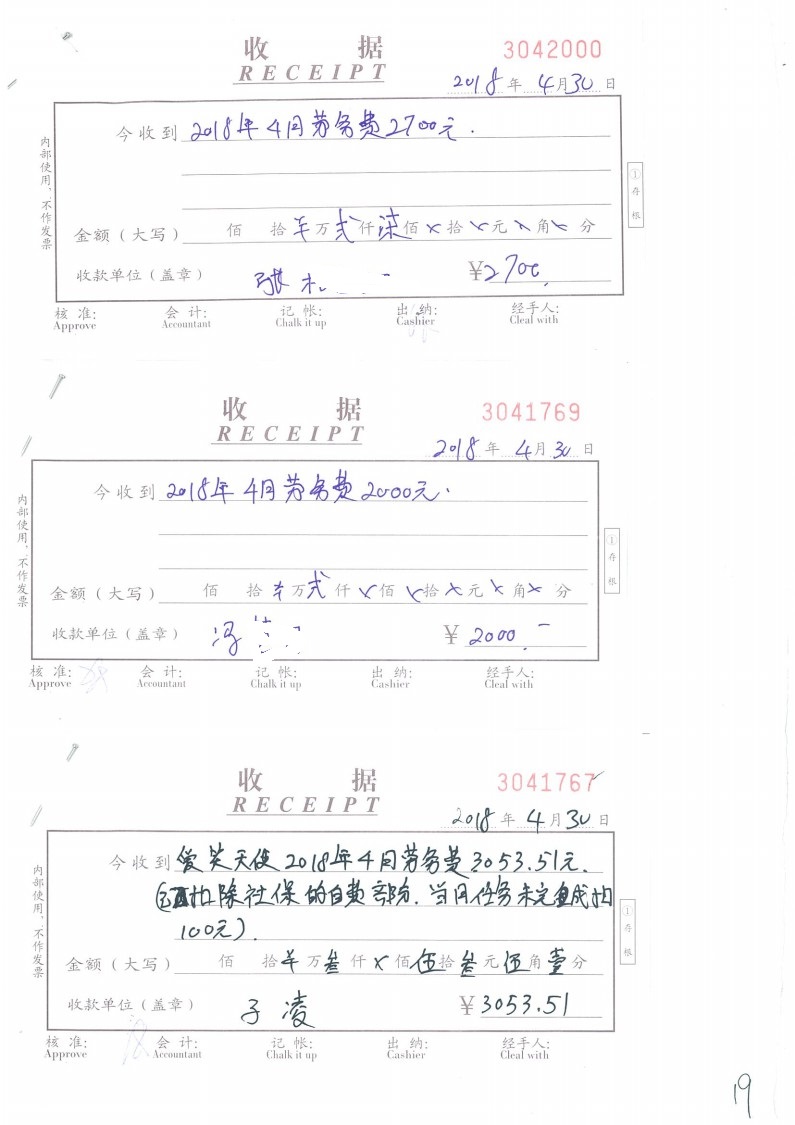 收 据 3042000
RECEIPT
2018年4月30日
今收到 2018年4月劳务费2700元.
内部使用，不作发票
①存根
金额（大写） 佰 拾 万 弍 仟 柒 佰 × 拾 × 元 × 角 × 分
收款单位（盖章） 张 ¥2700.
核 准: 会 计: 记 帐: 出 纳: 经手人:
Approve Accountant Chalk it up Cashier Cleal with
收 据 3041769
RECEIPT
2018年4月30日
今收到 2018年4月劳务费2000元.
内部使用，不作发票
①存根
金额（大写） 佰 拾 万 弍 仟 × 佰 × 拾 × 元 × 角 × 分
收款单位（盖章） 冯 ¥ 2000.-
核 准: 会 计: 记 帐: 出 纳: 经手人:
Approve Accountant Chalk it up Cashier Cleal with
收 据 3041767
RECEIPT
2018年4月30日
今收到 爱笑天使2018年4月劳务费3053.51元.
扣除社保的自费部份.当月任务未完成扣
100元).
内部使用，不作发票
①存根
金额（大写） 佰 拾 万 叁 仟 × 佰 伍 拾 叁 元 伍 角 壹 分
收款单位（盖章） 子凌 ¥3053.51
核 准: 会 计: 记 帐: 出 纳: 经手人:
Approve Accountant Chalk it up Cashier Cleal with
19